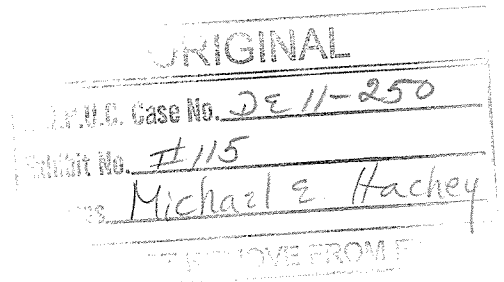 ORIGINAL
N.H.P.U.C. Case No. DE 11-250
Exhibit No. #115
Michael E. Hachey
REMOVE FROM